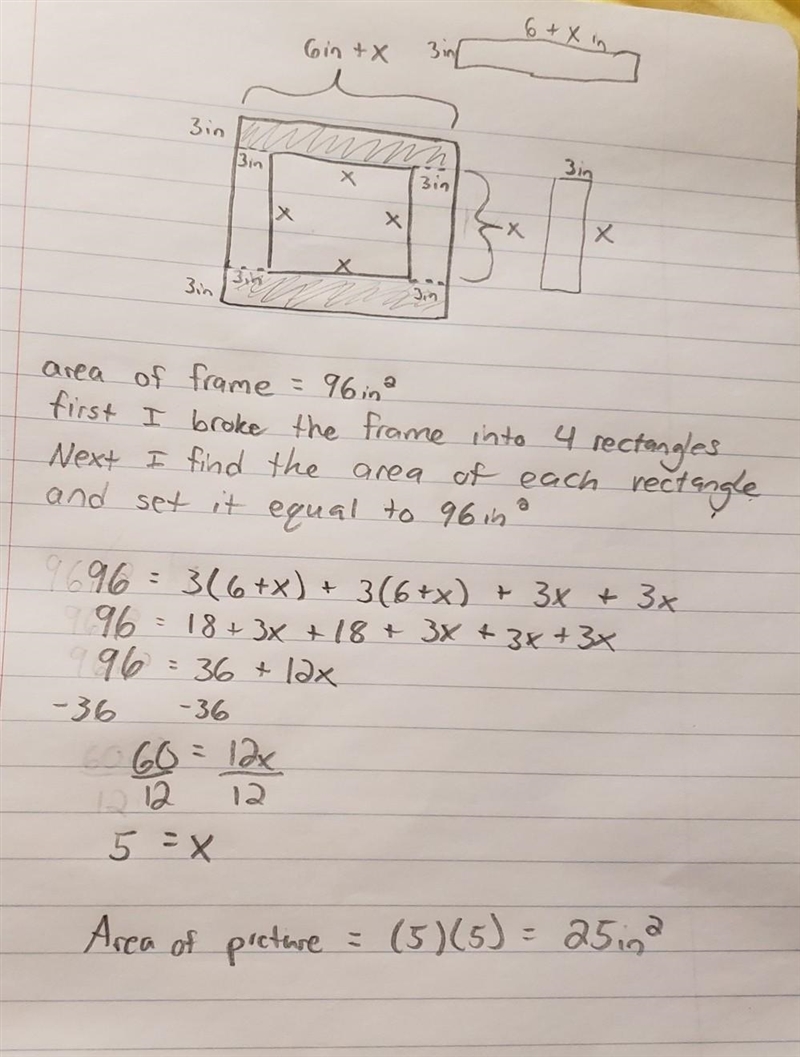 6 + x in
3in
6in + x
3in
3in
x
3in
x
x
x
3in
x
x
3in
3in
x
3in
area of frame = 96in²
first I broke the frame into 4 rectangles
Next I find the area of each rectangle
and set it equal to 96in²
96 = 3(6+x) + 3(6+x) + 3x + 3x
96 = 18 + 3x + 18 + 3x + 3x + 3x
96 = 36 + 12x
-36 -36
60 = 12x
12 12
5 = x
Area of picture = (5)(5) = 25in²